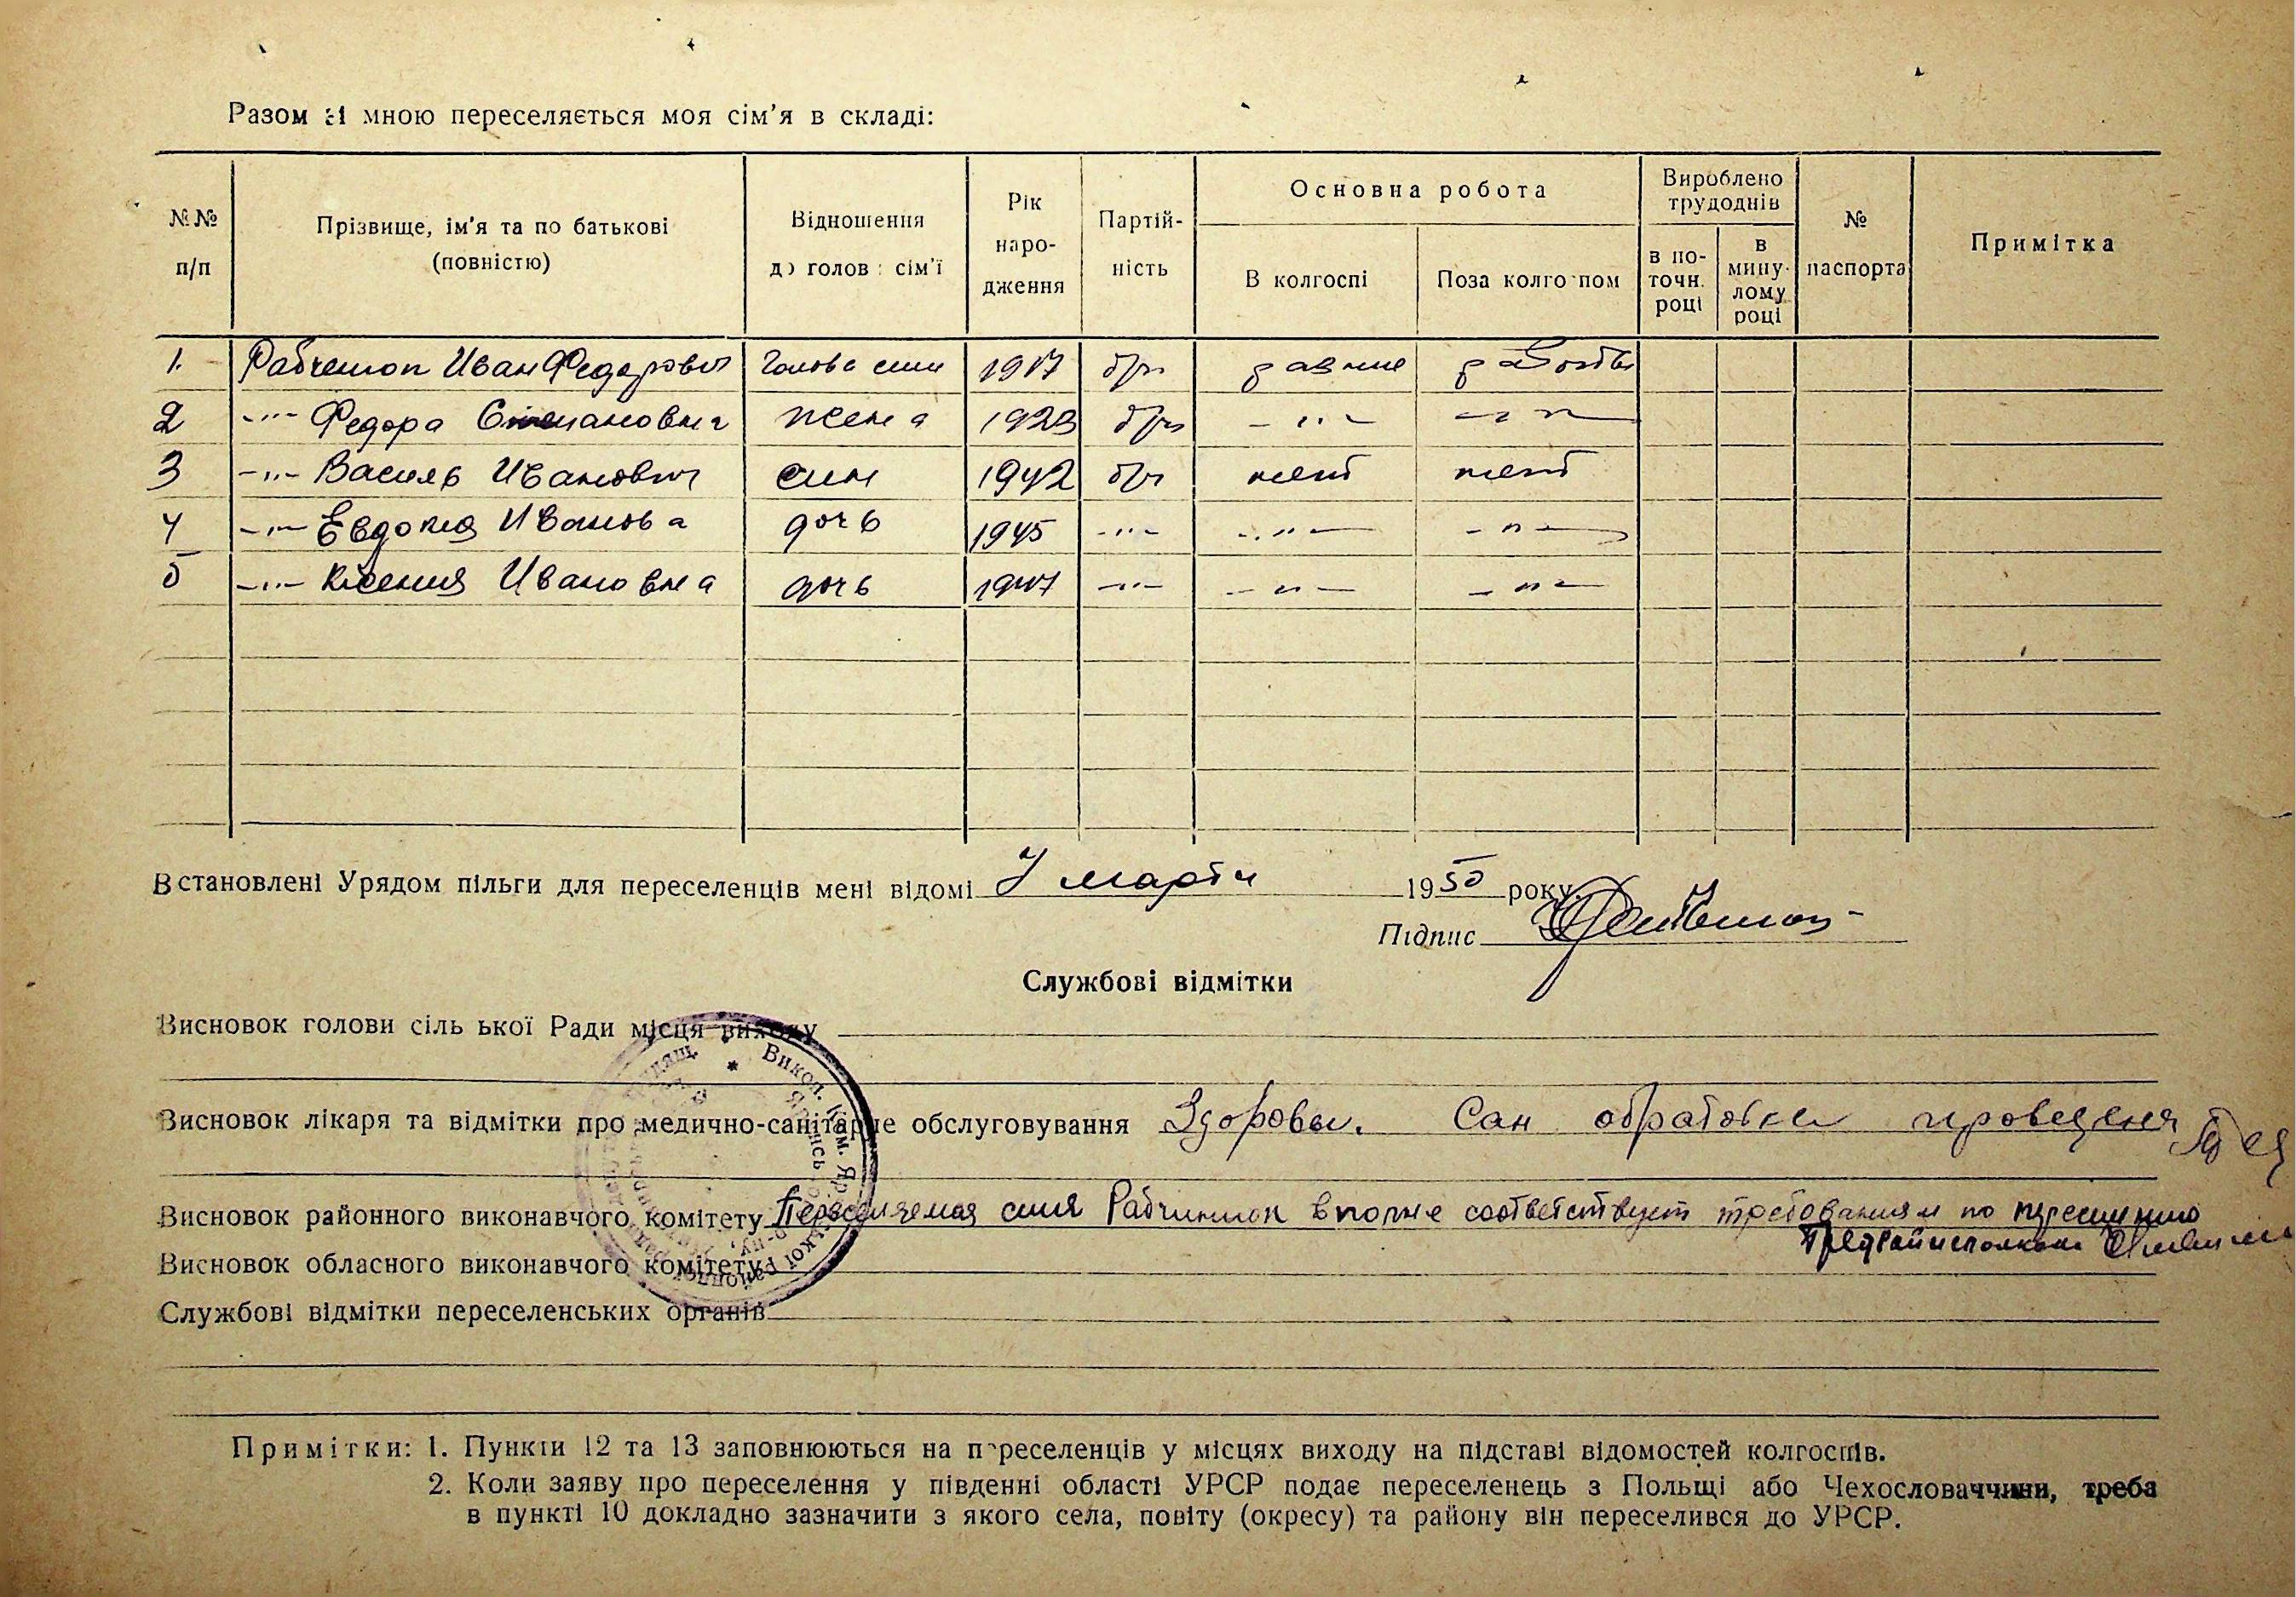 Разом зі мною переселяється моя сім'я в складі:
№№ п/п
Прізвище, ім'я та по батькові (повністю)
Відношення до голови сім'ї
Рік народження
Партійність
Основна робота
В колгоспі
Поза колгоспом
Вироблено трудоднів
в поточн. році
в минулому році
№ паспорта
Примітка
1. Иван Федорович голова сим 1917 бп
2 -"- Федора Степановна жена 1923 бп -"- -"-
3 -"- Василь Иванович син 1942 бп нет нет
4 -"- Евдокия Иванова дочь 1945 -"- -"- -"-
5 -"- Ксения Ивановна дочь 1947 -"- -"- -"-
Встановлені Урядом пільги для переселенців мені відомі 7 марта 1950 року
Підпис
Службові відмітки
Висновок голови сільської Ради місця виходу
Висновок лікаря та відмітки про медично-санітарне обслуговування Здоровы. Сан обработка проведена
Висновок районного виконавчого комітету Переселяемая симя вполне соответствует требованиям по переселению
Предрайисполкома
Висновок обласного виконавчого комітету
Службові відмітки переселенських органів
Викол. Ком.
Примітки: 1. Пункти 12 та 13 заповнюються на переселенців у місцях виходу на підставі відомостей колгоспів.
2. Коли заяву про переселення у південні області УРСР подає переселенець з Польщі або Чехословаччини, треба
в пункті 10 докладно зазначити з якого села, повіту (окресу) та району він переселився до УРСР.